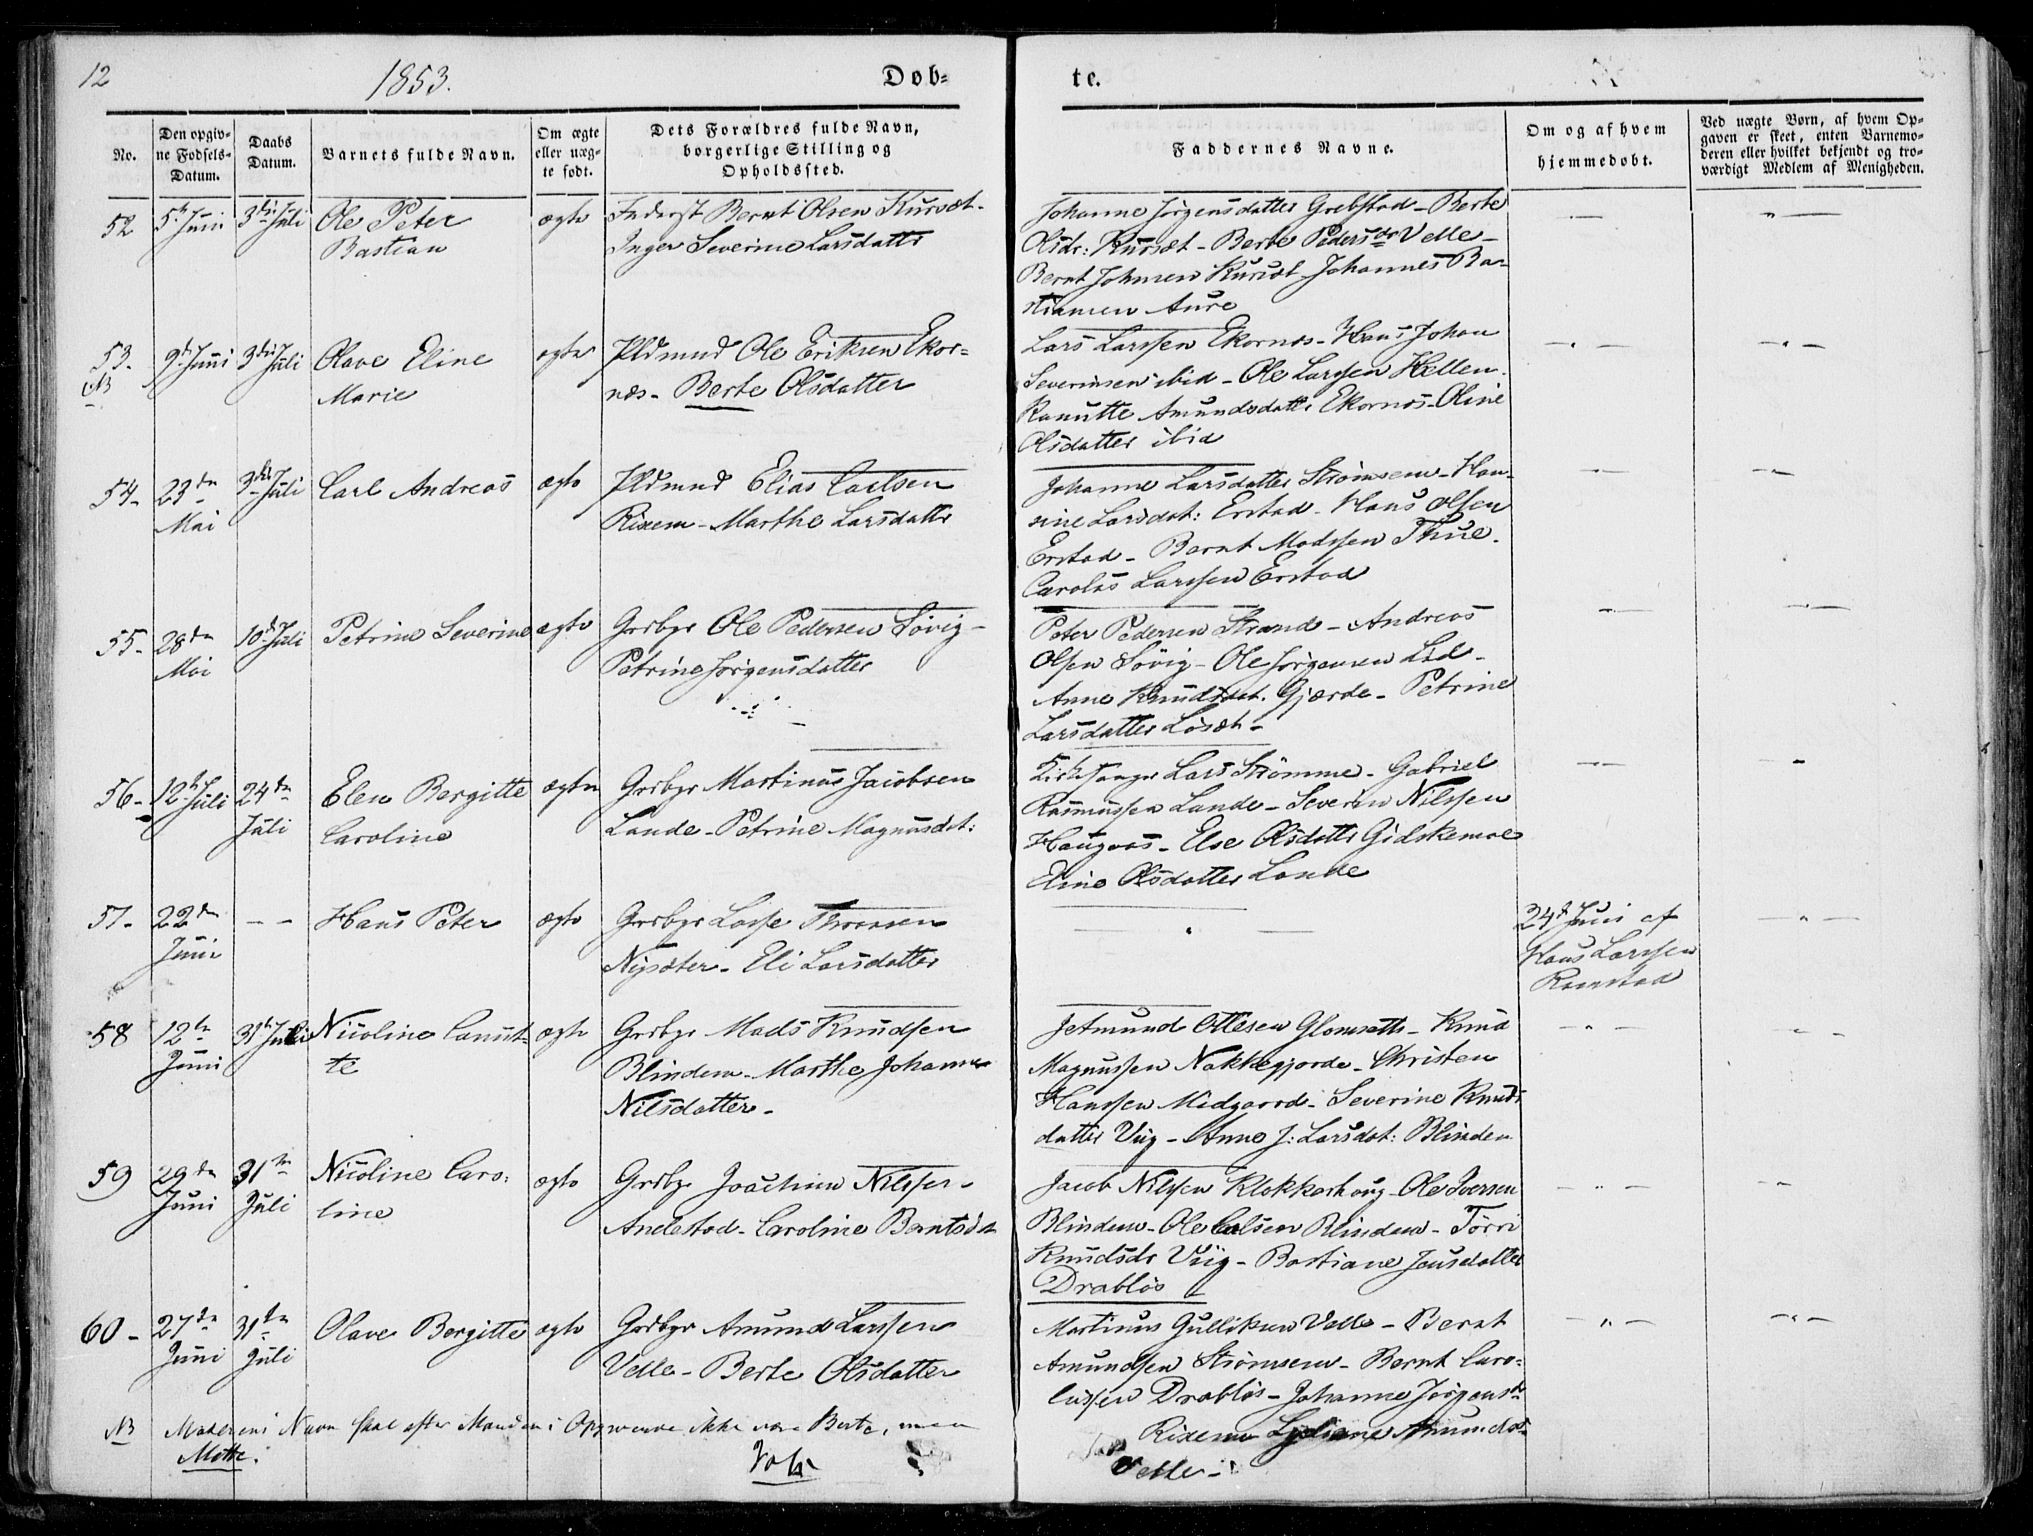 12
1853.
Døb=
te.
No.
Den opgiv-
ne Fødsels-
Datum.
Daabs
Datum.
Barnets fulde Navn.
Om ægte
eller uæg-
te født.
Dets Forældres fulde Navn,
borgerlige Stilling og
Opholdssted.
Faddernes Navne.
Om og af hvem
hjemmedøbt.
Ved uægte Børn, af hvem Op-
gaven er skeet, enten Barnemo-
deren eller hvilket bekjendt og tro-
værdigt Medlem af Menigheden.
52
5te Juni
3die Juli
Ole Peter
Bastian
ægte
Inderst Bernt Olsen Kursæt-
Inger Severine Larsdatter
Johanne Jörgensdatter Grebstad - Berte
Olsdr: Kursæt - Berte Pedersdr Velle -
Bernt Johnsen Kursæt - Johannes Ba-
stiansen Aure
53.
NB
9de Juni
3die Juli
Olave Eline
Marie
ægte
Pldmnd Ole Eriksen Ekor=
næs - Berte Olsdatter
Lars Larssen Ekornæs - Hans Johan
Severinsen ibid - Ole Larssen Hellen.
Kanutte Amundsdatter Ekornæs - Oline
Olsdatter ibid
54-
23de
Mai
3die Juli
Carl Andreas
ægte
Pldmnd Elias Carlsen
Rixem - Marthe Larsdatter
Johanne Larsdatter Strømsem - Han-
sine Larsdat: Erstad - Hans Olsen
Erstad - Bernt Madssen Thue.
Carolus Larssen Erstad
55-
28de
Mai
10de Juli
Petrine Severine
ægte
Grdbgr Ole Pedersen Sövig -
Petrine Jörgensdatter
Peter Pedersen Strand - Andreas
Olsen Sövig - Ole Jörgensen Lid -
Anne Knudsdat. Gjærde - Petrine
Larsdatter Løsæt -
56-
12te Juli
24de
Juli
Elen Bergitte
Caroline
ægte
Grdbgr Martinus Jacobsen
Lande - Petrine Magnusdat:
Kirksanger Lars Strömme - Gabriel
Rasmussen Lande - Severin Nilssen
Haugnæs - Else Olsdatter Gidskemoe
Eline Olsdatter Lande
57-
22de
Juni
- -
Hans Peter
ægte
Grdbgr Lasse Thronsen
Nysæter - Eli Larsdatter
24de Juni af
Hans Larssen
Ramstad
58
12te
Juni
31te Juli
Nicoline Canut-
te
ægte
Grdbgr Mads Knudsen
Blindem - Marthe Johanne
Nilsdatter -
Jetmund Ottesen Glomsæth - Knud
Magnussen Nakkegjærde - Christen
Hanssen Midgaard - Severine Knuds
datter Viig - Anne J: Larsdat: Blindem
59
29de
Juni
31te
Juli
Nicoline Caro:
line
ægte
Grdbgr Joachim Nilssen
Andestad - Caroline Berntsdat
Jacob Nilssen Klokkerhoug - Ole Iversen
Blindem - Ole Colsen Blindem - Törri
Knudsdr Viig - Bastiane Jensdatter
Drabløs
60-
27de
Juni
31te
Juli
Olave Bergitte
ægte
Grdbgr Amund Larssen
Velle - Berte Olsdatter
Martinus Gulliksen Velle - Bernt
Amundsen Strømsem - Bernt Caro=
lussen Drabløs - Johanne Jörgensdr
Rixem Lydiane Amundsdr
Velle -
NB Moderens Navn skal efter Mandens Opgivende ikke være Berte, men
Mette.